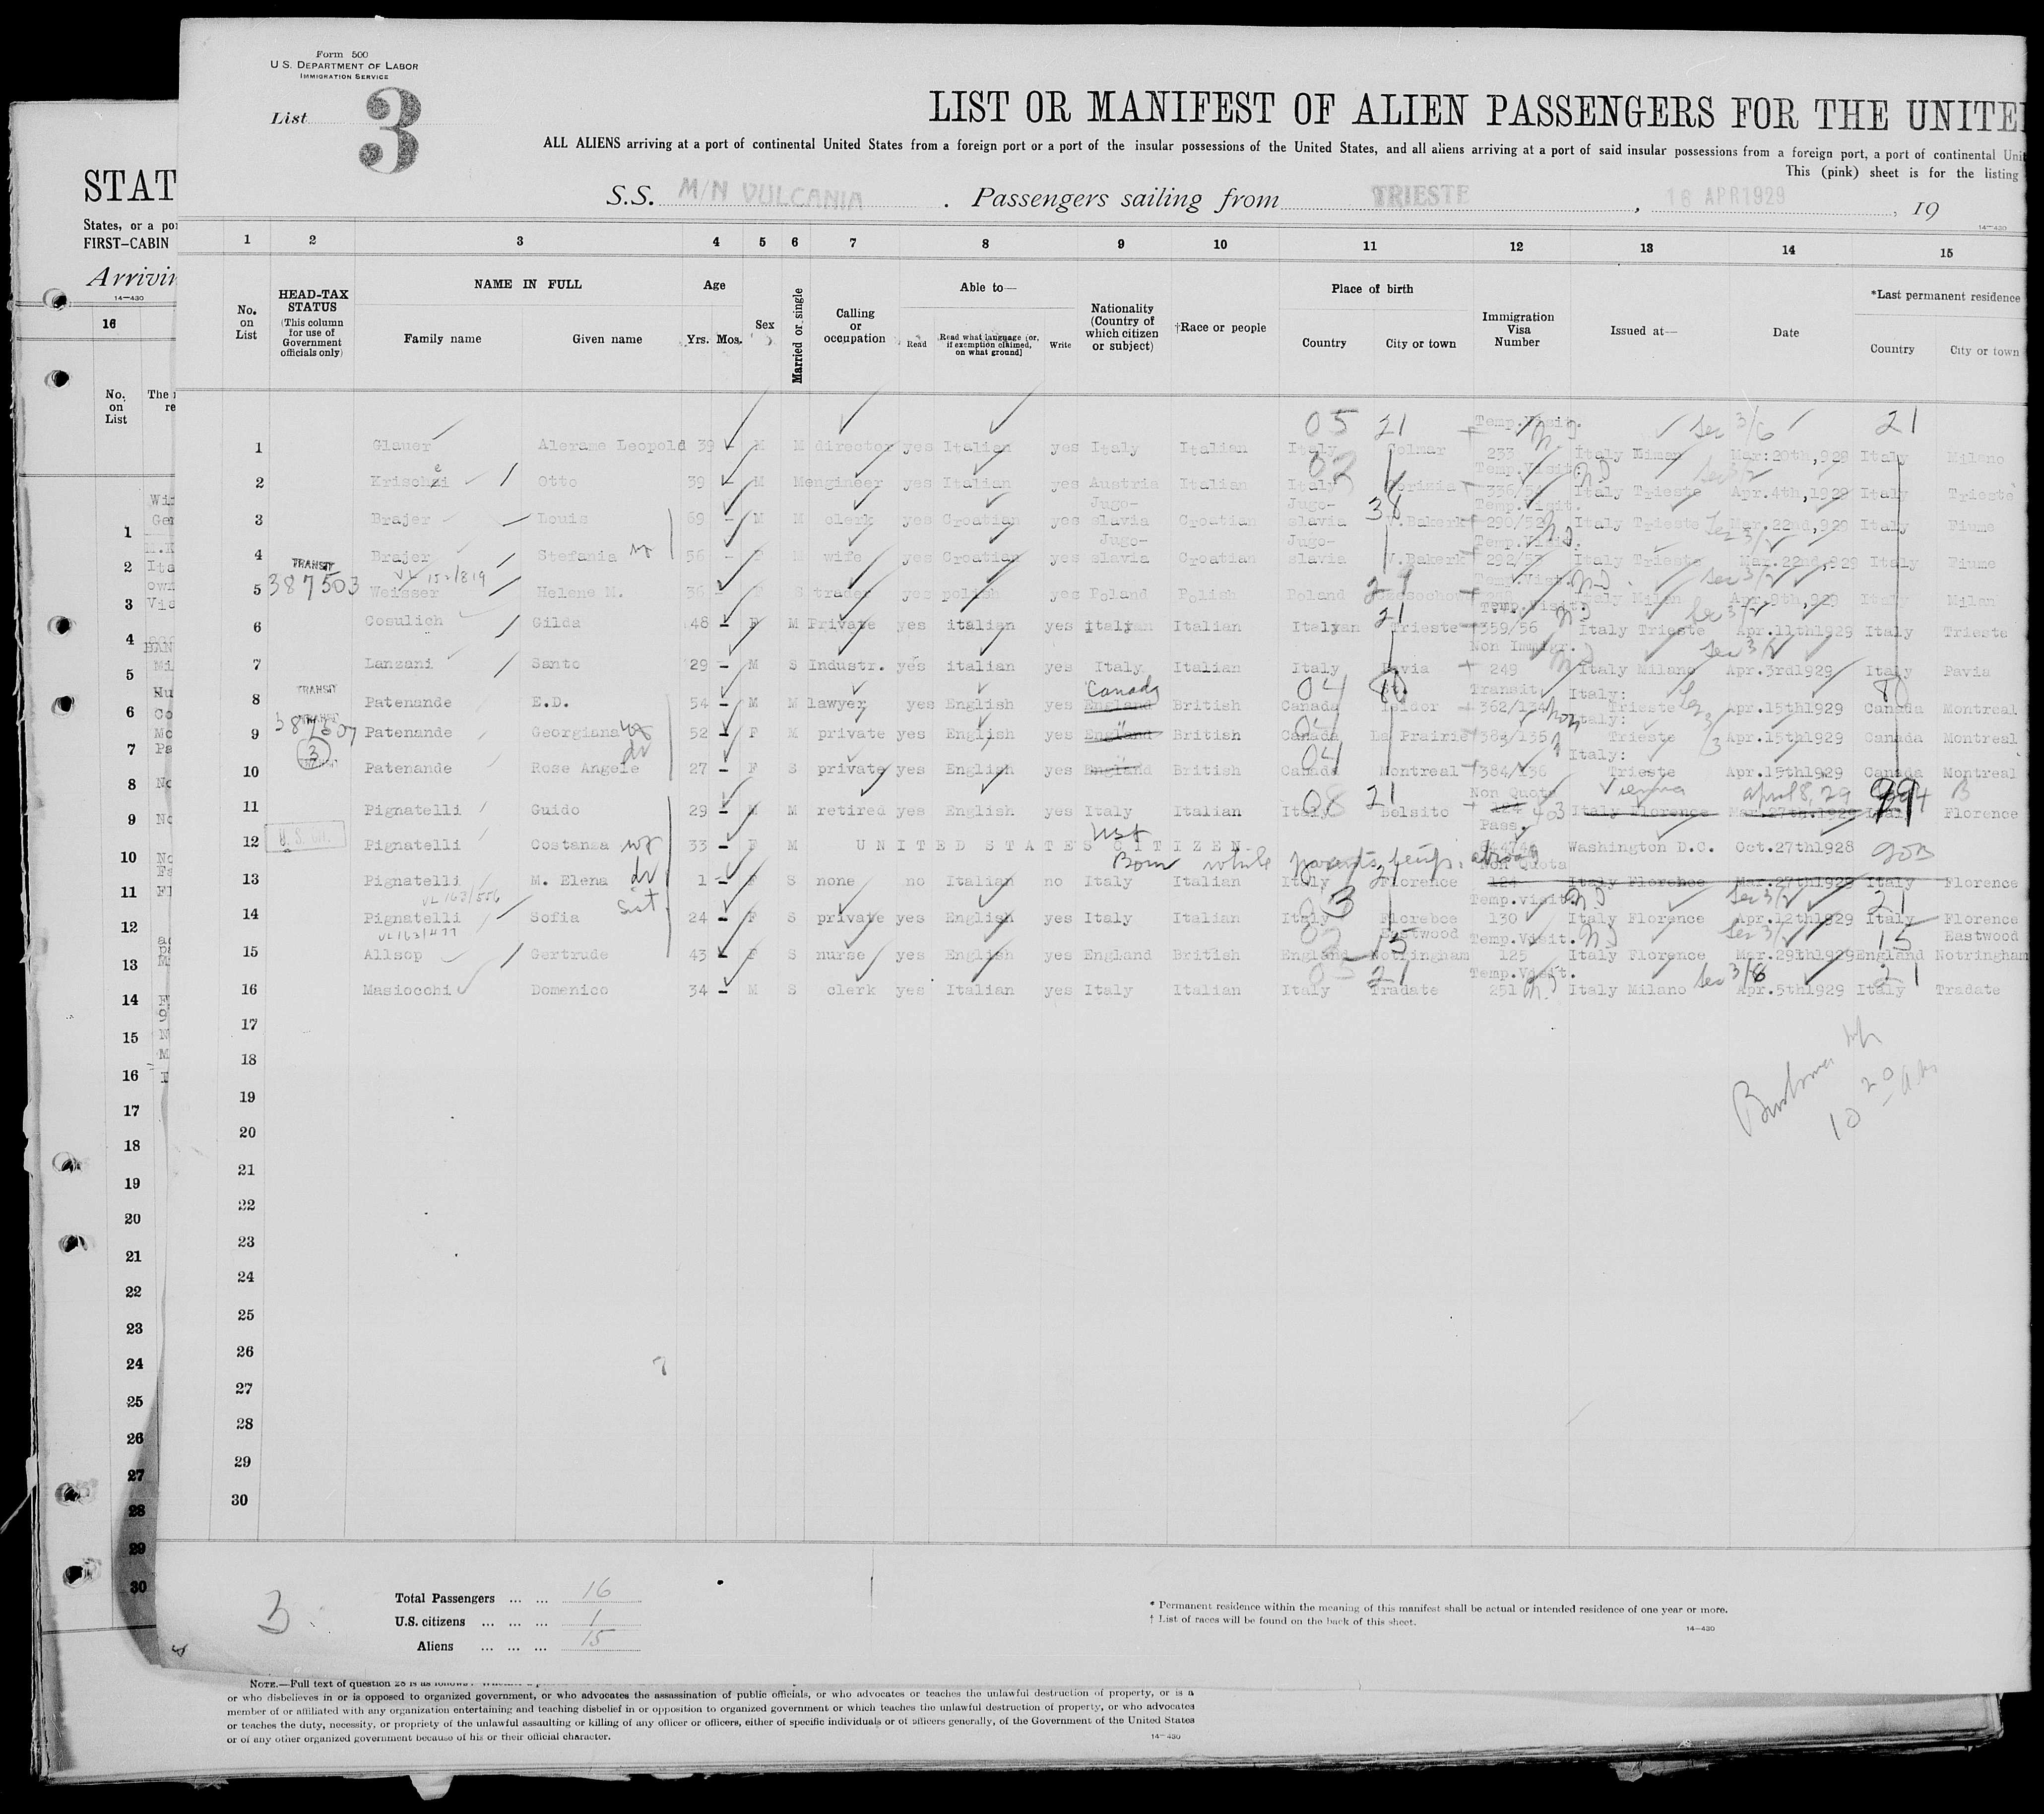 Form 500
U.S. DEPARTMENT OF LABOR
IMMIGRATION SERVICE
List 3
LIST OR MANIFEST OF ALIEN PASSENGERS FOR THE UNITE
ALL ALIENS arriving at a port of continental United States from a foreign port or a port of the insular possessions of the United States, and all aliens arriving at a port of said insular possessions from a foreign port, a port of continental Unit
This (pink) sheet is for the listing
S.S. M/N VULCANIA . Passengers sailing from TRIESTE , 16 APR 1929 , 19
14—430
STAT
States, or a por
FIRST-CABIN
Arrivin
14—430
16
No. on List
1 2 3 4 5 6 7 8 9 10 11 12 13 14 15
No. on List
HEAD-TAX STATUS (This column for use of Government officials only)
NAME IN FULL
Family name Given name
Age
Yrs. Mos.
Sex
Married or single
Calling or occupation
Able to—
Read Read what language [or, if exemption claimed, on what ground] Write
Nationality (Country of which citizen or subject)
†Race or people
Place of birth
Country City or town
Immigration Visa Number
Issued at—
Date
*Last permanent residence
Country City or town
05 21 Temp.Visit. Sec 3/6 21
1 Glauer Alerame Leopold 39 – M M director yes Italian yes Italy Italian Italy Colmar 233 Italy Mar:20th,929 Italy Milano
Temp.Visit.
2 Otto 39 – M M engineer yes Italian yes Austria Italian Italy 336/ Italy Trieste Apr.4th,1929 Italy Trieste
Jugo- Jugo- 38 Temp.Visit.
3 Brajer Louis 69 – M M clerk yes Croatian yes slavia Croatian slavia V.Bakerk 290/52 Italy Trieste Mar.22nd,929 Italy Fiume
Jugo- Jugo- Temp.Visit.
4 Brajer Stefania 56 – F M wife yes Croatian yes slavia Croatian slavia V.Bakerk 292/ Italy Trieste Mar.22nd,929 Italy Fiume
TRANSIT
387503 VL 152/819 Temp.Visit. Sec 3/2
5 Weisser Helene M. 36 – F S trader yes polish yes Poland Polish Poland Italy Milan Apr.9th,929 Italy Milan
21 Temp.Visit.
6 Cosulich Gilda 48 – F M Private yes italian yes Italyian Italian Italyan Trieste 359/56 Italy Trieste Apr.11th1929 Italy Trieste
Non Immigr. Sec 3/2
7 Lanzani Santo 29 – M S Industr. yes italian yes Italy Italian Italy Pavia 249 Italy Milano Apr.3rd1929 Italy Pavia
TRANSIT Canada 04 St. Transit Italy:
8 Patenande E.D. 54 – M M lawyer yes English yes England British Canada Isidor 362/134 Trieste Apr.15th1929 Canada Montreal
387507 04 Italy:
9 Patenande Georgiana 52 – F M private yes English yes England British Canada La Prairie 383/135 Trieste Apr.15th1929 Canada Montreal
3 04 Italy:
10 Patenande Rose Angele 27 – F S private yes English yes England British Canada Montreal 384/136 Trieste Apr.15th1929 Canada Montreal
08 21 Non Quota Vienna april 8, 29 99
11 Pignatelli Guido 29 – M M retired yes English yes Italy Italian Italy Belsito 124 403 Italy Florence Mar.27th.1929 Italy Florence
Pass.
12 Pignatelli Costanza 33 – F M UNITED STATES CITIZEN Washington D.C. Oct.27th1928
Born while parents temp. abroad
Non Quota
13 Pignatelli M. Elena 1 – F S none no Italian no Italy Italian Italy Florence 124 Italy Florence Mar.27th1929 Italy Florence
VL 163/506 sist. Temp.visit. Sec 3/2 21
14 Pignatelli Sofia 24 – F S private yes English yes Italy Italian Italy Florebce 130 Italy Florence Apr.12th1929 Italy Florence
VL 163/477 Eastwood Temp.Visit. Sec 3/2 15 Eastwood
15 Allsop Gertrude 43 – F S nurse yes English yes England British England Notringham 125 Italy Florence Mar.29th1929 England Notringham
05 21 Temp.Visit. Sec 3/8 21
16 Masiocchi Domenico 34 – M S clerk yes Italian yes Italy Italian Italy Tradate 251 Italy Milano Apr.5th1929 Italy Tradate
17
18
19
20
21
22
23
24
25
26
27
28
29
30
10 20
3
Total Passengers ... ... 16
U.S. citizens ... ... ... 1
Aliens ... ... ... 15
* Permanent residence within the meaning of this manifest shall be actual or intended residence of one year or more.
† List of races will be found on the back of this sheet.
14—430
NOTE.—Full text of question 28 is as follows:
or who disbelieves in or is opposed to organized government, or who advocates the assassination of public officials, or who advocates or teaches the unlawful destruction of property, or is a
member of or affiliated with any organization entertaining and teaching disbelief in or opposition to organized government or which teaches the unlawful destruction of property, or who advocates
or teaches the duty, necessity, or propriety of the unlawful assaulting or killing of any officer or officers, either of specific individuals or of officers generally, of the Government of the United States
or of any other organized government because of his or their official character.
14—430